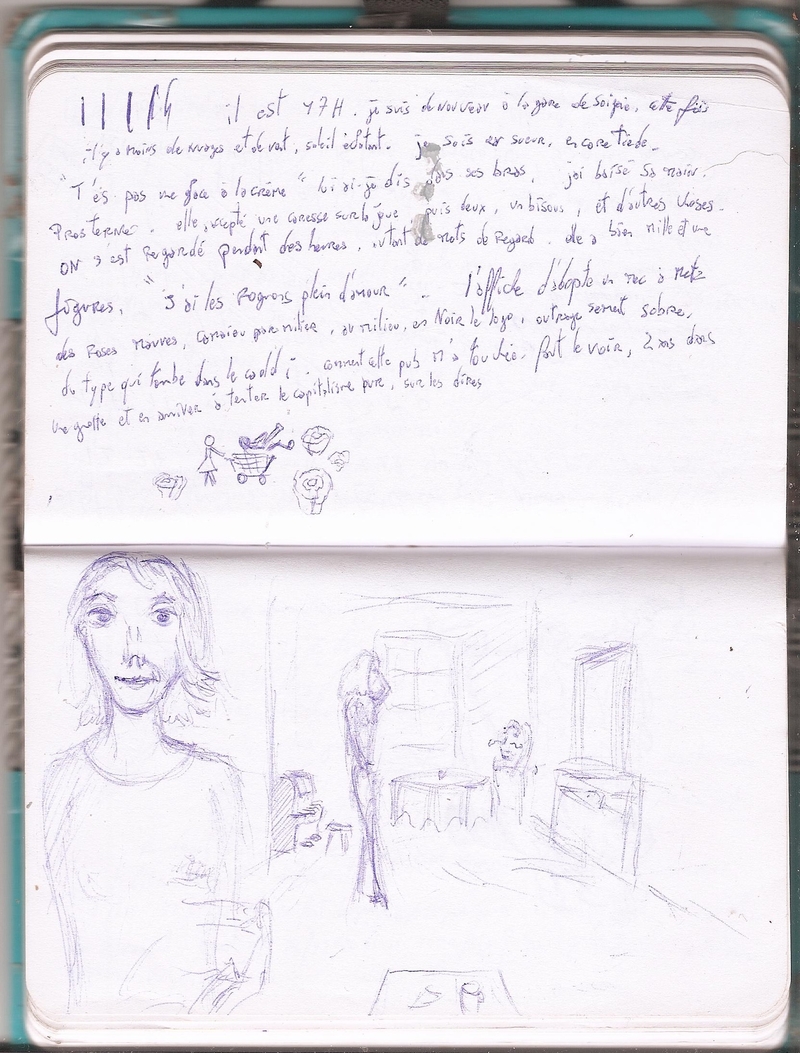 il est 17H. je suis de nouveau à la gare de Soignie, cette fois
il y a moins de nuages et de vent, soleil éclatant. je suis en sueur, encore tiède.
"T'es pas une glace à la crème" lui ai-je dis dans ses bras, j'ai baisé sa main.
Prosterné. elle accepté une caresse sur la joue puis deux, un bisous, et d'autres choses.
ON s'est regardé pendant des heures, autant de mots de Regard. elle a bien mille et une
figures. "J'ai les Rognons plein d'amour".. l'affiche d'adopte un mec à
des Roses mauves, au milieu, en Noir le logo, outrageusement sobre.
du type qui tombe dans le caddi. comment cette pub m'a touchée. faut le voir, 2 ans dans
une grotte et en arriver à tenter le capitalisme pure, sur les